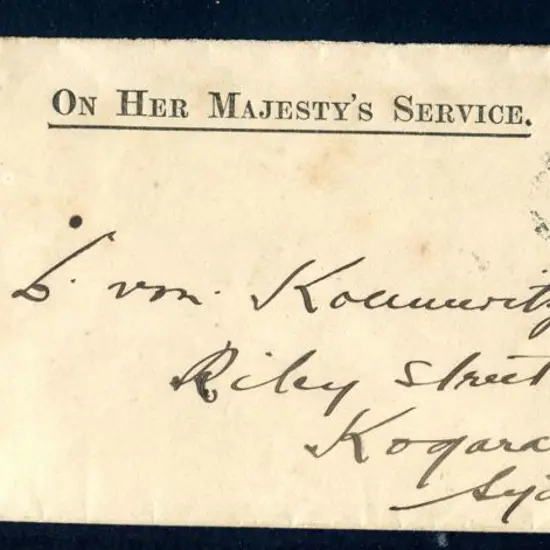 ON HER MAJESTY'S SERVICE.
von Kommuritz
Riley Street
Kogara
Syd